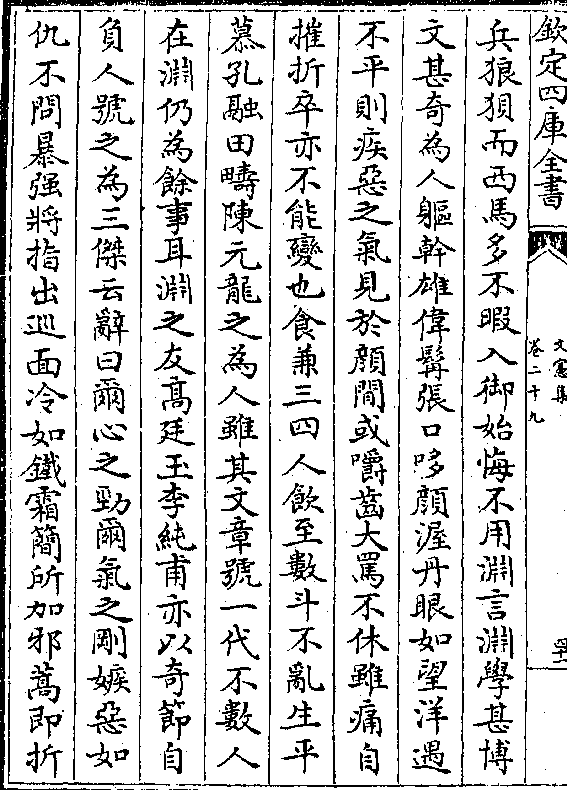 欽定四庫全書
文憲集
卷二十九
兵狼狽而西馬多不暇入御始悔不用淵言淵學甚博
文甚奇為人軀幹雄偉髯張口哆顔渥丹眼如望洋遇
不平則疾惡之氣見於顔間或嚼齒大罵不休雖痛自
摧折卒亦不能變也食兼三四人飲至數斗不亂生平
慕孔融田疇陳元龍之為人雖其文章號一代不數人
在淵仍為餘事耳淵之友髙廷玉李純甫亦以竒節自
負人號之為三傑云辭曰爾心之勁爾氣之剛嫉惡如
仇不問暴强將指出巡面冷如鐵霜簡所加邪蒿即折